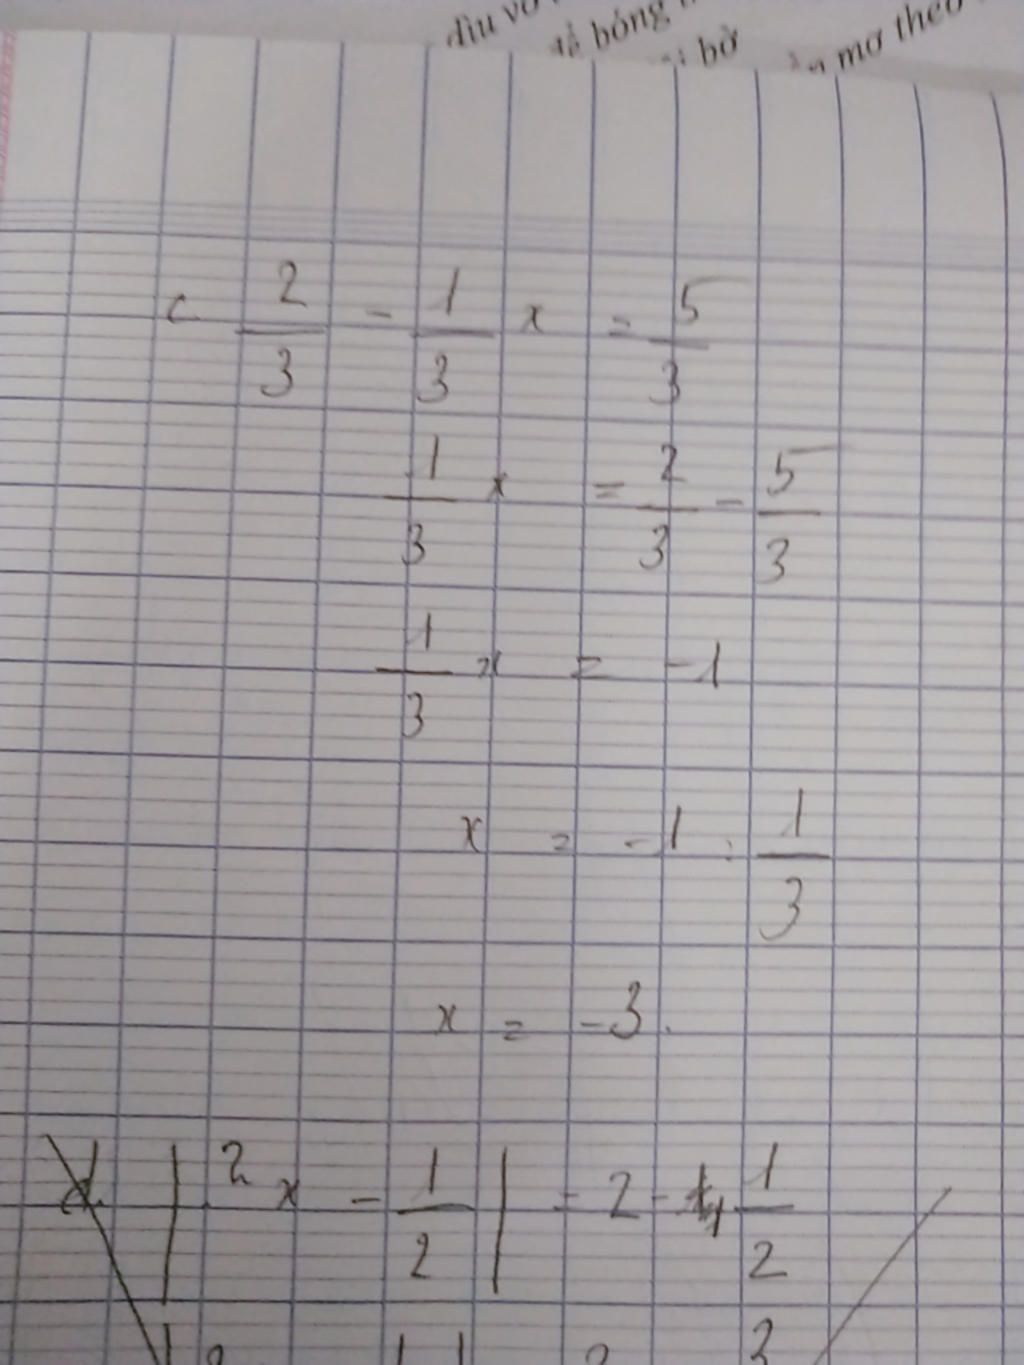 dìu vớ
bóng
bờ
mơ theo
c 2/3 - 1/3 x = 5/3
1/3 x = 2/3 - 5/3
1/3 x = -1
x = -1 : 1/3
x = -3.
d. | 2x - 1/2 | = 2 - 1/2